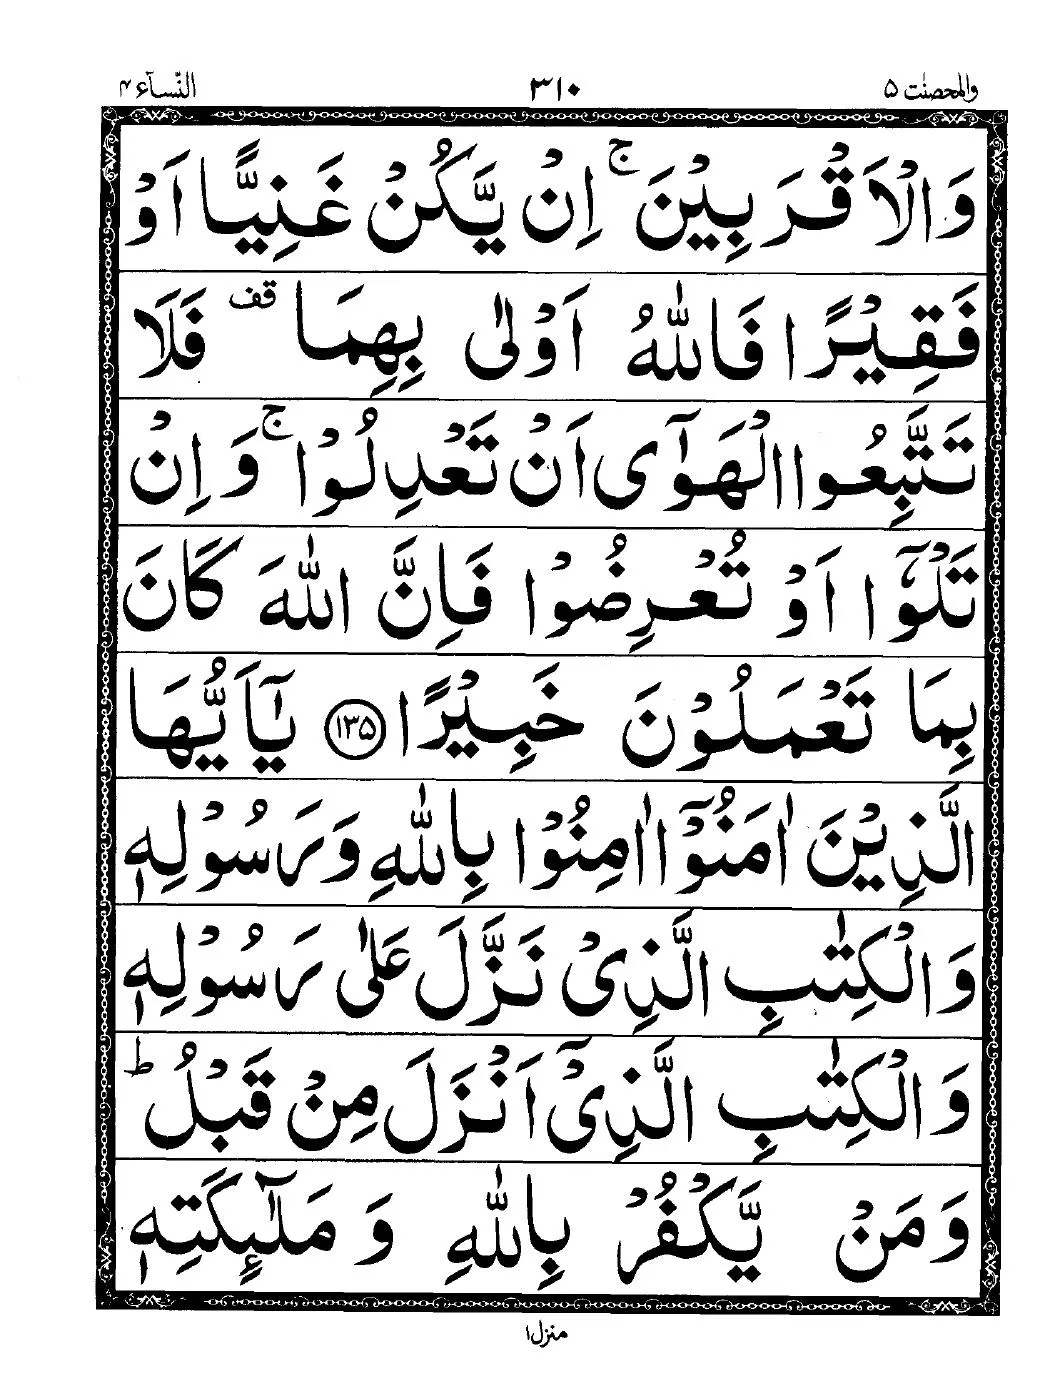 والمحصنٰت ۵ ۳۱۰ النّسآء ۴
وَالْاَقْرَبِيْنَ ۚ اِنْ يَّكُنْ غَنِيًّا اَوْ
فَقِيْرًا فَاللّٰهُ اَوْلٰى بِهِمَا قف فَلَا
تَتَّبِعُوا الْهَوٰٓى اَنْ تَعْدِلُوْا ۚ وَاِنْ
تَلْوٗٓا اَوْ تُعْرِضُوْا فَاِنَّ اللّٰهَ كَانَ
بِمَا تَعْمَلُوْنَ خَبِيْرًا ۱۳۵ يٰۤاَيُّهَا
الَّذِيْنَ اٰمَنُوْٓا اٰمِنُوْا بِاللّٰهِ وَرَسُوْلِهٖ
وَالْكِتٰبِ الَّذِيْ نَزَّلَ عَلٰى رَسُوْلِهٖ
وَالْكِتٰبِ الَّذِيْٓ اَنْزَلَ مِنْ قَبْلُ ؕ
وَمَنْ يَّكْفُرْ بِاللّٰهِ وَمَلٰٓئِكَتِهٖ
منزل ۱